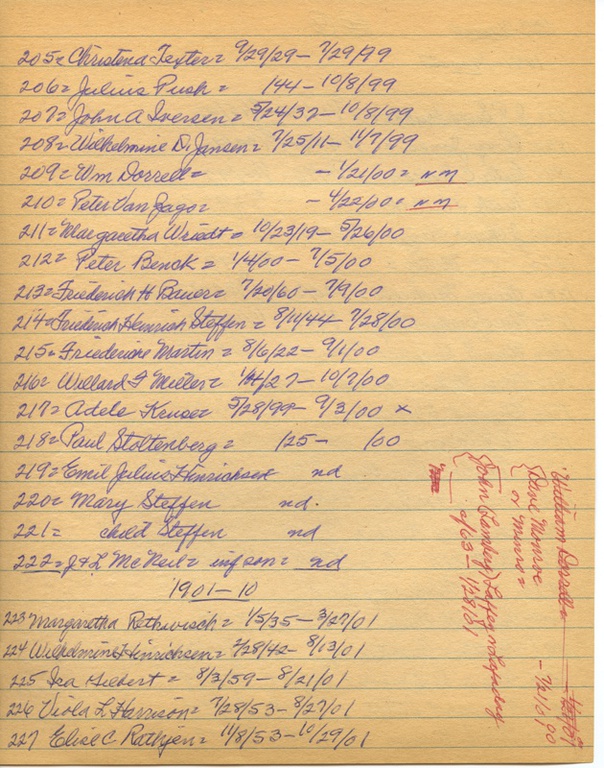 205= Christena Texter= 9/29/29- 7/29/99
206= Julius Push= 144- 10/8/99
207= John A Iversen= 5/24/37- 10/8/99
208= Wilhelmine D. Jansen= 7/25/11- 11/7/99
209= Wm Dorrell= - 1/21/00= nm
210= Peter Van Jago= - 4/22/00= nm
211= Margaretha Wriedt= 10/23/19- 5/26/00
212= Peter Benck= 1/4/00- 7/5/00
213= Friederich H Bauer= 7/20/60- 7/9/00
214= Friedrich Heinrich Steffen= 8/11/44- 7/28/00
215= Friederiche Martin= 8/6/22- 9/1/00
216= Willard F Miller= 27- 10/7/00
217= Adele Kruse= 5/28/99- 9/3/00 x
218= Paul Stoltenberg= 125- 100
219= Emil Julius Hinrichsen nd
220= Mary Steffen nd.
221= child Steffen nd
222= J & L McNeil= inf son= nd
1901-10
223 Margaretha Rethwisch= 1/5/35- 3/27/01
224 Wilhelmine Hinrichsen= 2/28/42- 8/13/01
225 Ida Hiebert= 8/3/59- 8/21/01
226 Viola L Harrison= 7/28/53- 8/27/01
227 Elise C Rathjen= 11/8/53- 10/29/01
William Dorrell=
Dave Monroe - 7/21/90
or Munro=
John Lambert
of 63- 1/28/81